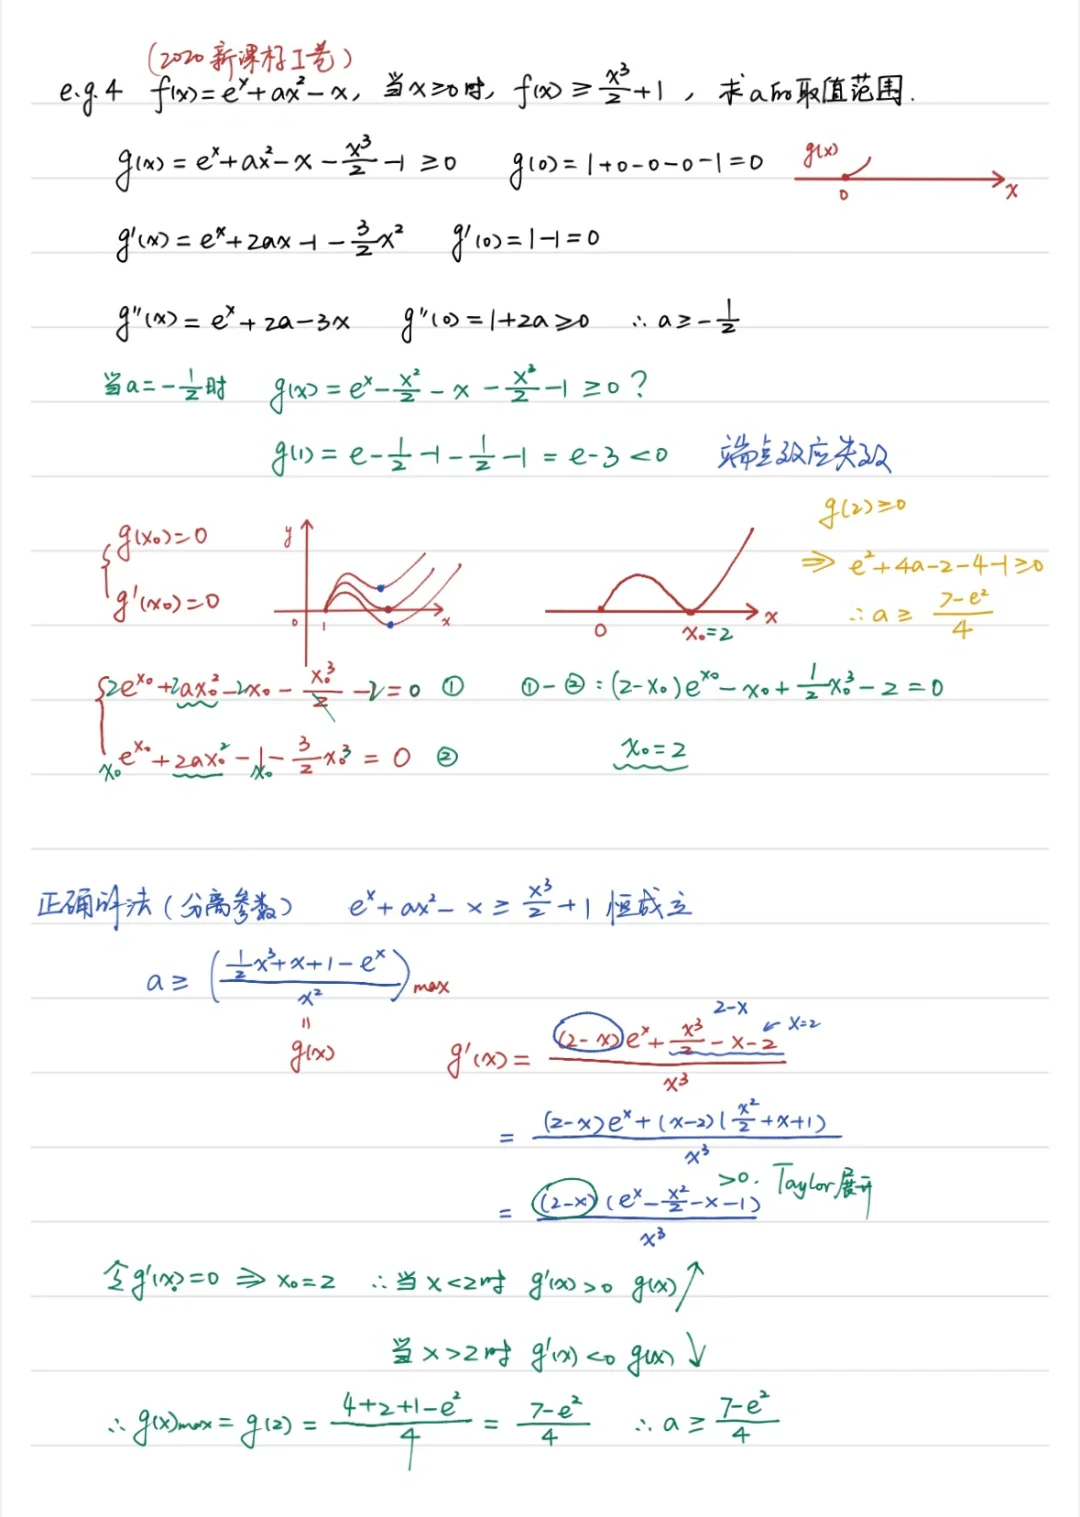 (2020新课标I卷)
e.g.4 f(x)=eˣ+ax²-x, 当x≥0时, f(x)≥x³/2+1, 求a的取值范围.
g(x)=eˣ+ax²-x-x³/2-1≥0 g(0)=1+0-0-0-1=0 g(x) 0 x
g'(x)=eˣ+2ax-1-3/2x² g'(0)=1-1=0
g''(x)=eˣ+2a-3x g''(0)=1+2a≥0 ∴a≥-1/2
当a=-1/2时 g(x)=eˣ-x²/2-x-x³/2-1≥0?
g(1)=e-1/2-1-1/2-1=e-3<0 端点效应失效
g(2)≥0
⇒e²+4a-2-4-1≥0
∴a≥(7-e²)/4
{g(x₀)=0
g'(x₀)=0
y 0 1 x
0 x₀=2 x
{2e^x₀+2ax₀²-2x₀-x₀³/2-2=0 ① ①-②:(2-x₀)e^x₀-x₀+1/2x₀³-2=0
x₀e^x₀+2ax₀²-1x₀-3/2x₀³=0 ② x₀=2
正确解法(分离参数) eˣ+ax²-x≥x³/2+1恒成立
a≥((1/2x³+x+1-eˣ)/x²)max
=
g(x) g'(x)=((2-x)eˣ+x³/2-x-2)/x³ 2-x ↙x=2
=((2-x)eˣ+(x-2)(x²/2+x+1))/x³
=((2-x)(eˣ-x²/2-x-1))/x³ >0. Taylor展开
令g'(x₀)=0⇒x₀=2 ∴当x<2时 g'(x)>0 g(x)↗
当x>2时 g'(x)<0 g(x)↓
∴g(x)max=g(2)=(4+2+1-e²)/4=(7-e²)/4 ∴a≥(7-e²)/4